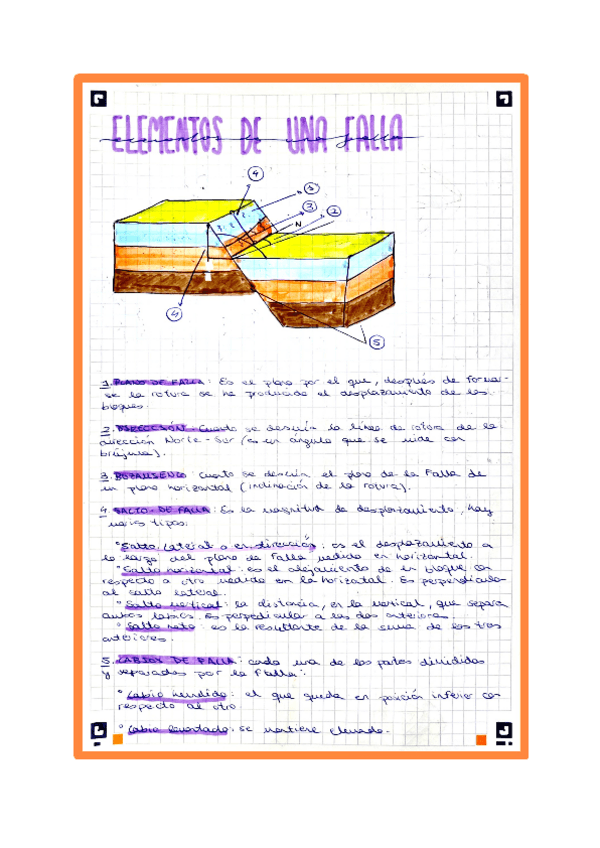 ELEMENTOS DE UNA FALLA
4
1
3
2
N
4
5
1. PLANO DE FALLA: Es el plano por el que, después de formar-
se la rotura se ha producido el desplazamiento de los
bloques.
2. DIRECCIÓN: Cuanto se desvía la línea de rotura de la
dirección Norte-Sur (es un ángulo que se mide con
brújula).
3. BUZAMIENTO: Cuanto se desvía el plano de la Falla de
un plano horizontal (inclinación de la rotura).
4. SALTO DE FALLA: Es la magnitud de desplazamiento, hay
varios tipos:
° Salto lateral o en dirección: es el desplazamiento a
lo largo del plano de Falla medido en horizontal.
° Salto horizontal: es el alejamiento de un bloque con
respecto a otro medido en la horizontal. Es perpendicular
al salto lateral.
° Salto vertical: la distancia, en la vertical, que separa
ambos labios. Es perpendicular a los dos anteriores
° Salto neto: es la resultante de la suma de los tres
anteriores.
5. LABIOS DE FALLA: cada una de las partes divididas
y separadas por la Falla:
° Labio hundido: el que queda en posición inferior con
respecto al otro
° Labio levantado: se mantiene elevado.